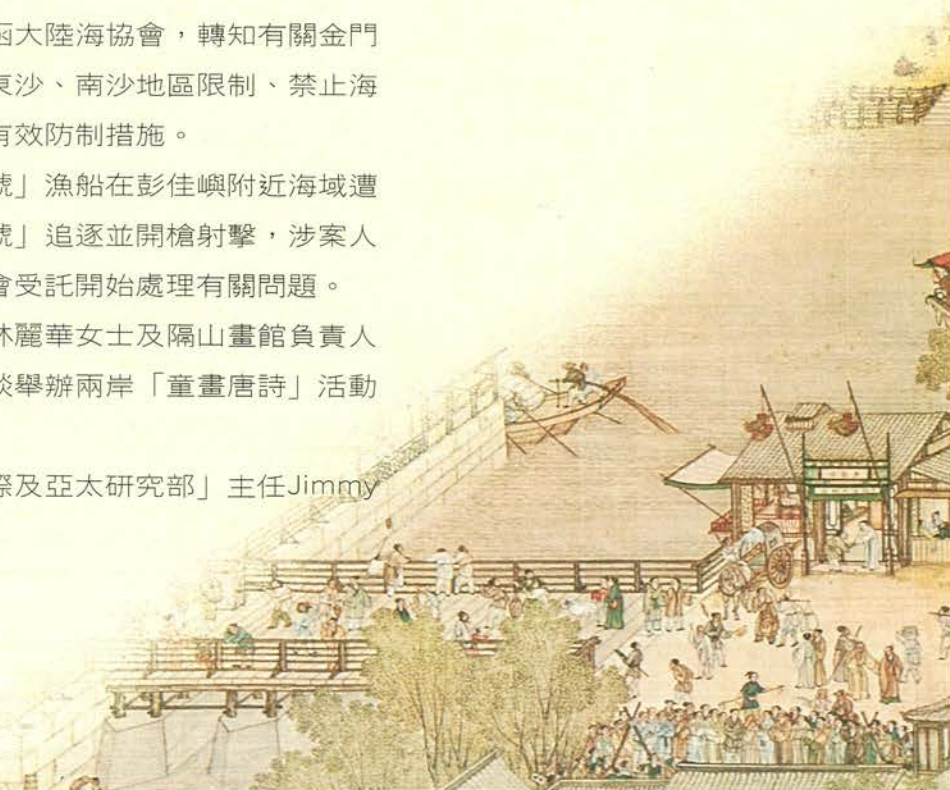 函大陸海協會，轉知有關金門
東沙、南沙地區限制、禁止海
有效防制措施。
號」漁船在彭佳嶼附近海域遭
號」追逐並開槍射擊，涉案人
會受託開始處理有關問題。
林麗華女士及隔山畫館負責人
談舉辦兩岸「童畫唐詩」活動
際及亞太研究部」主任Jimmy